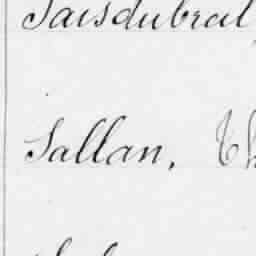 Saisdubral
Sallan, Th